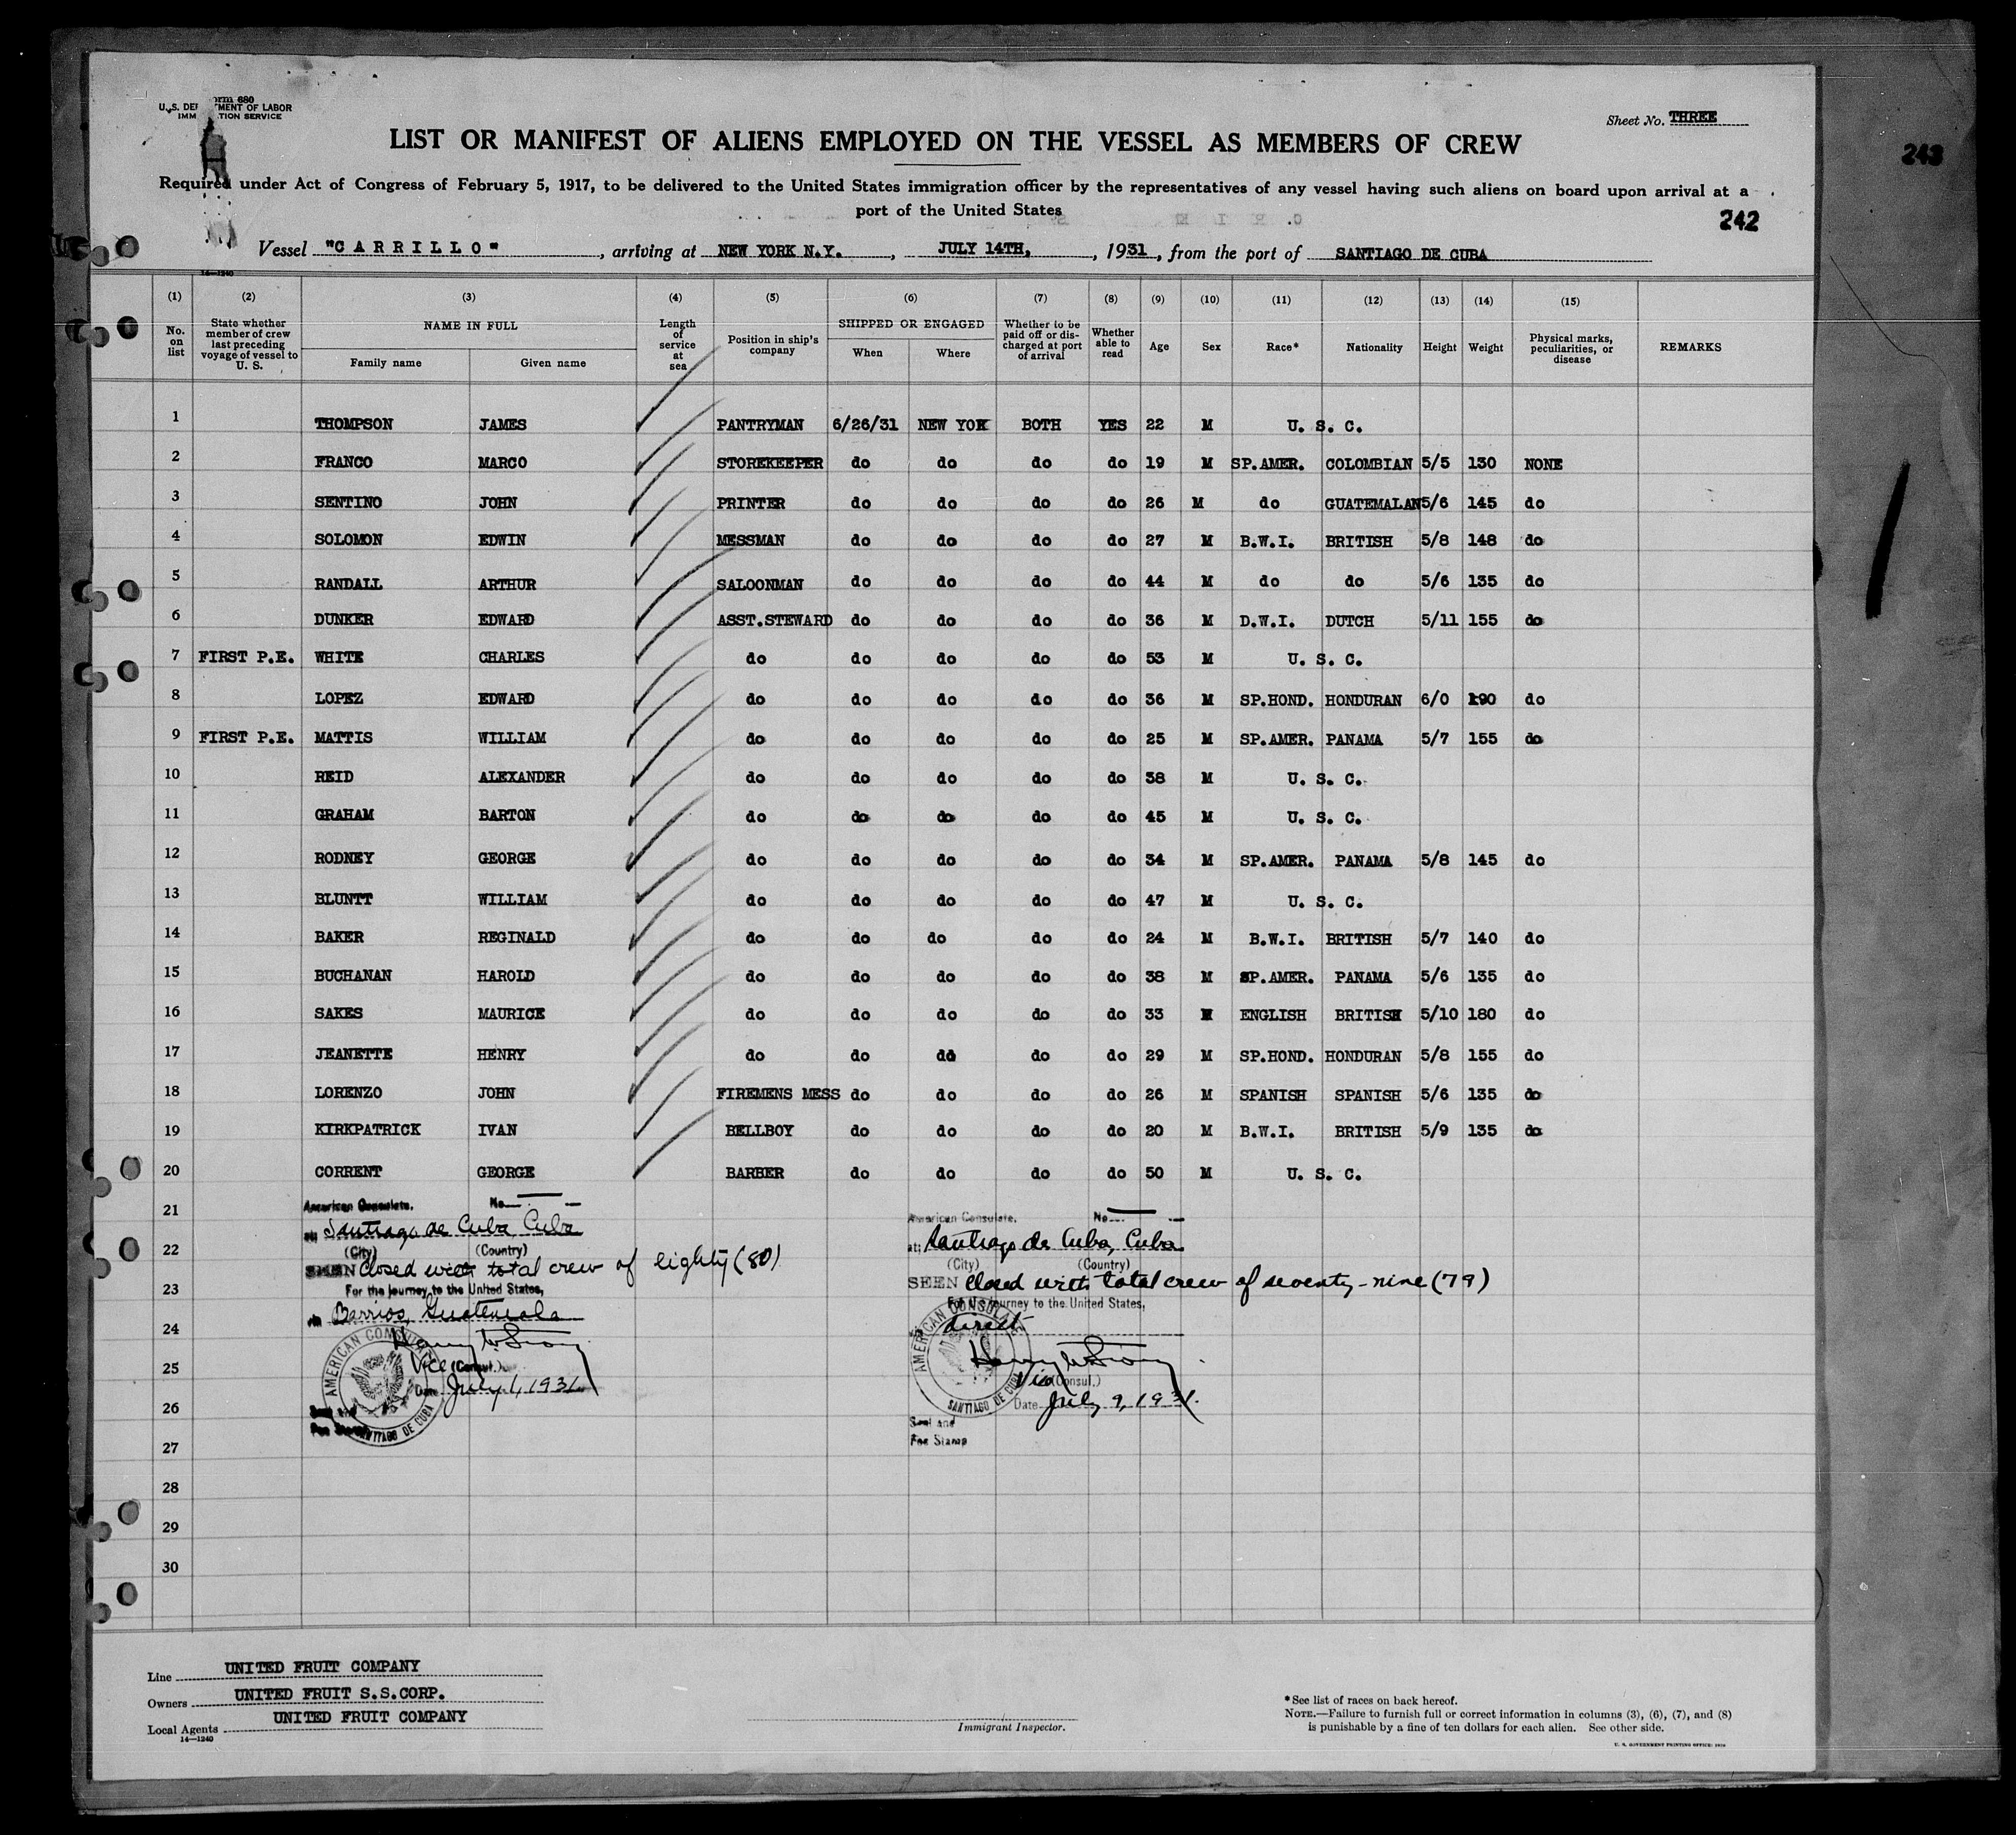 Form 680
U.S. DEPARTMENT OF LABOR
IMMIGRATION SERVICE
Sheet No. THREE
LIST OR MANIFEST OF ALIENS EMPLOYED ON THE VESSEL AS MEMBERS OF CREW
243
Required under Act of Congress of February 5, 1917, to be delivered to the United States immigration officer by the representatives of any vessel having such aliens on board upon arrival at a
port of the United States
242
Vessel "CARRILLO", arriving at NEW YORK N.Y., JULY 14TH, , 1931, from the port of SANTIAGO DE CUBA
14—1240
(1) (2) (3) (4) (5) (6) (7) (8) (9) (10) (11) (12) (13) (14) (15)
No. on list | State whether member of crew last preceding voyage of vessel to U. S. | NAME IN FULL | Length of service at sea | Position in ship's company | SHIPPED OR ENGAGED | Whether to be paid off or discharged at port of arrival | Whether able to read | Age | Sex | Race* | Nationality | Height | Weight | Physical marks, peculiarities, or disease | REMARKS
Family name | Given name | When | Where
1 THOMPSON JAMES PANTRYMAN 6/26/31 NEW YOK BOTH YES 22 M U. S. C.
2 FRANCO MARCO STOREKEEPER do do do do 19 M SP.AMER. COLOMBIAN 5/5 130 NONE
3 SENTINO JOHN PRINTER do do do do 26 M do GUATEMALAN 5/6 145 do
4 SOLOMON EDWIN MESSMAN do do do do 27 M B.W.I. BRITISH 5/8 148 do
5 RANDALL ARTHUR SALOONMAN do do do do 44 M do do 5/6 135 do
6 DUNKER EDWARD ASST.STEWARD do do do do 36 M D.W.I. DUTCH 5/11 155 do
7 FIRST P.E. WHITE CHARLES do do do do do 53 M U. S. C.
8 LOPEZ EDWARD do do do do do 36 M SP.HOND. HONDURAN 6/0 190 do
9 FIRST P.E. MATTIS WILLIAM do do do do do 25 M SP.AMER. PANAMA 5/7 155 do
10 REID ALEXANDER do do do do do 38 M U. S. C.
11 GRAHAM BARTON do do do do do 45 M U. S. C.
12 RODNEY GEORGE do do do do do 34 M SP.AMER. PANAMA 5/8 145 do
13 BLUNTT WILLIAM do do do do do 47 M U. S. C.
14 BAKER REGINALD do do do do do 24 M B.W.I. BRITISH 5/7 140 do
15 BUCHANAN HAROLD do do do do do 38 M SP.AMER. PANAMA 5/6 135 do
16 SAKES MAURICE do do do do do 33 M ENGLISH BRITISH 5/10 180 do
17 JEANETTE HENRY do do do do do 29 M SP.HOND. HONDURAN 5/8 155 do
18 LORENZO JOHN FIREMENS MESS do do do do 26 M SPANISH SPANISH 5/6 135 do
19 KIRKPATRICK IVAN BELLBOY do do do do 20 M B.W.I. BRITISH 5/9 135 do
20 CORRENT GEORGE BARBER do do do do 50 M U. S. C.
21
22
23
24
25
26
27
28
29
30
American Consulate. No.
at: Santiago de Cuba, Cuba
(City) (Country)
SEEN Closed with total crew of eighty (80)
For the journey to the United States,
via Barrios, Guatemala
Vice (Consul.)
Date July 1, 1931
Seal and
Fee Stamp
AMERICAN CONSULATE
SANTIAGO DE CUBA
American Consulate. No.
at: Santiago de Cuba, Cuba
(City) (Country)
SEEN Closed with total crew of seventy-nine (79)
For the journey to the United States,
direct
Vice (Consul.)
Date July 9, 1931.
Seal and
Fee Stamp
AMERICAN CONSULATE
SANTIAGO DE CUBA
Line UNITED FRUIT COMPANY
Owners UNITED FRUIT S.S.CORP.
Local Agents UNITED FRUIT COMPANY
14—1240
Immigrant Inspector.
*See list of races on back hereof.
NOTE.—Failure to furnish full or correct information in columns (3), (6), (7), and (8)
is punishable by a fine of ten dollars for each alien. See other side.
U. S. GOVERNMENT PRINTING OFFICE: